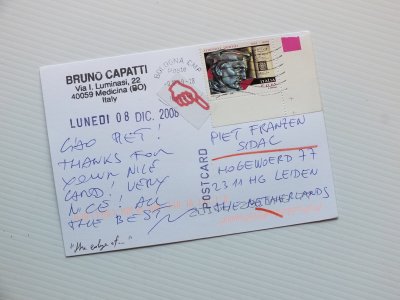 BRUNO CAPATTI
Via I. Luminasi, 22
40059 Medicina (BO)
Italy
LUNEDI 08 DIC. 2008
CIAO PIET!
THANKS FOR
YOUR NICE
CARD! VERY
NICE! ALL
THE BEST
"the edge of..."
BOLOGNA CMP
Poste
POSTCARD
PIET FRANZEN
SIDAC
HOGEWOERD 77
2311 HG LEIDEN
THE NETHERLANDS